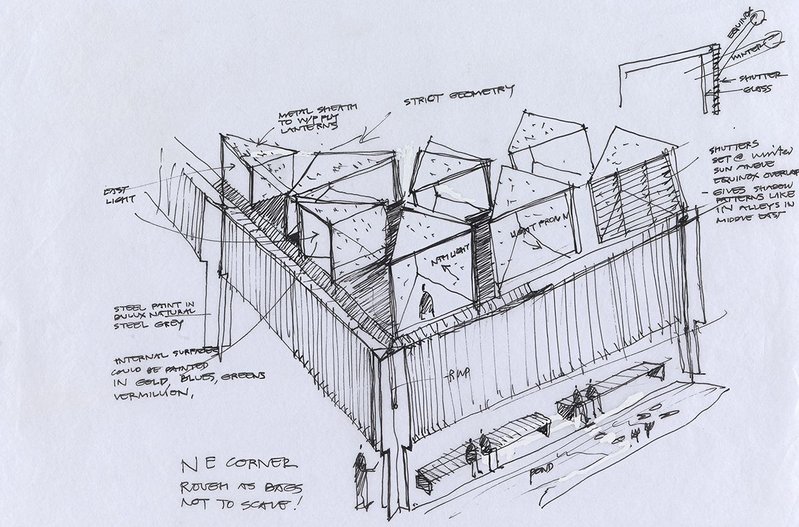 EQUINOX
WINTER
SHUTTER
GLASS
METAL SHEATH
TO W/P PLY
LANTERNS
STRICT GEOMETRY
EAST
LIGHT
SHUTTERS
SET @ WINTER
SUN ANGLE
EQUINOX OVERLAP
- GIVES SHADOW
PATTERNS LIKE
IN ALLEYS IN
MIDDLE EAST
NTH LIGHT
LIGHT FROM N
STEEL PAINT IN
DULUX NATURAL
STEEL GREY
INTERNAL SURFACES
COULD BE PAINTED
IN GOLD, BLUES, GREENS
VERMILLION,
RWP
POND
N E CORNER
ROUGH AS BAGS
NOT TO SCALE!